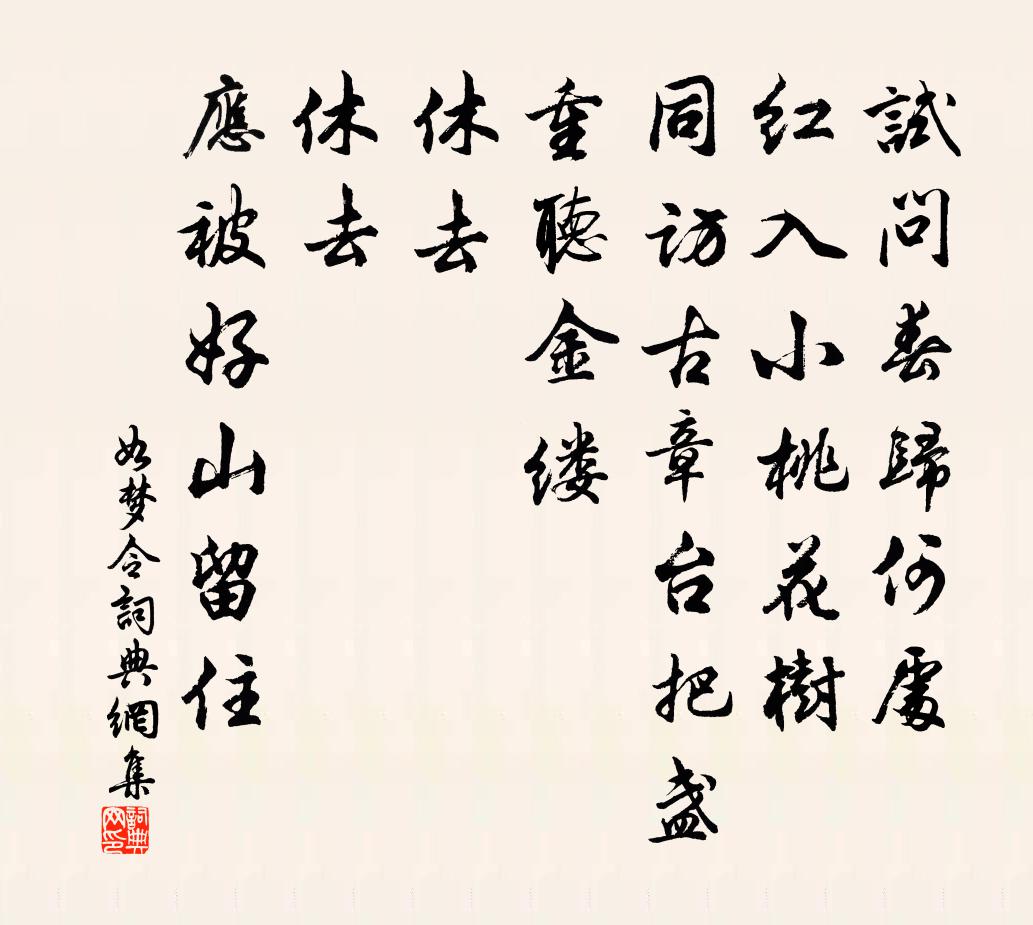 試問春歸何處
紅入小桃花樹
同访古章台把盏
重聽金缕
休去
休去
應被好山留住
如梦令詞典網集
詞典网印